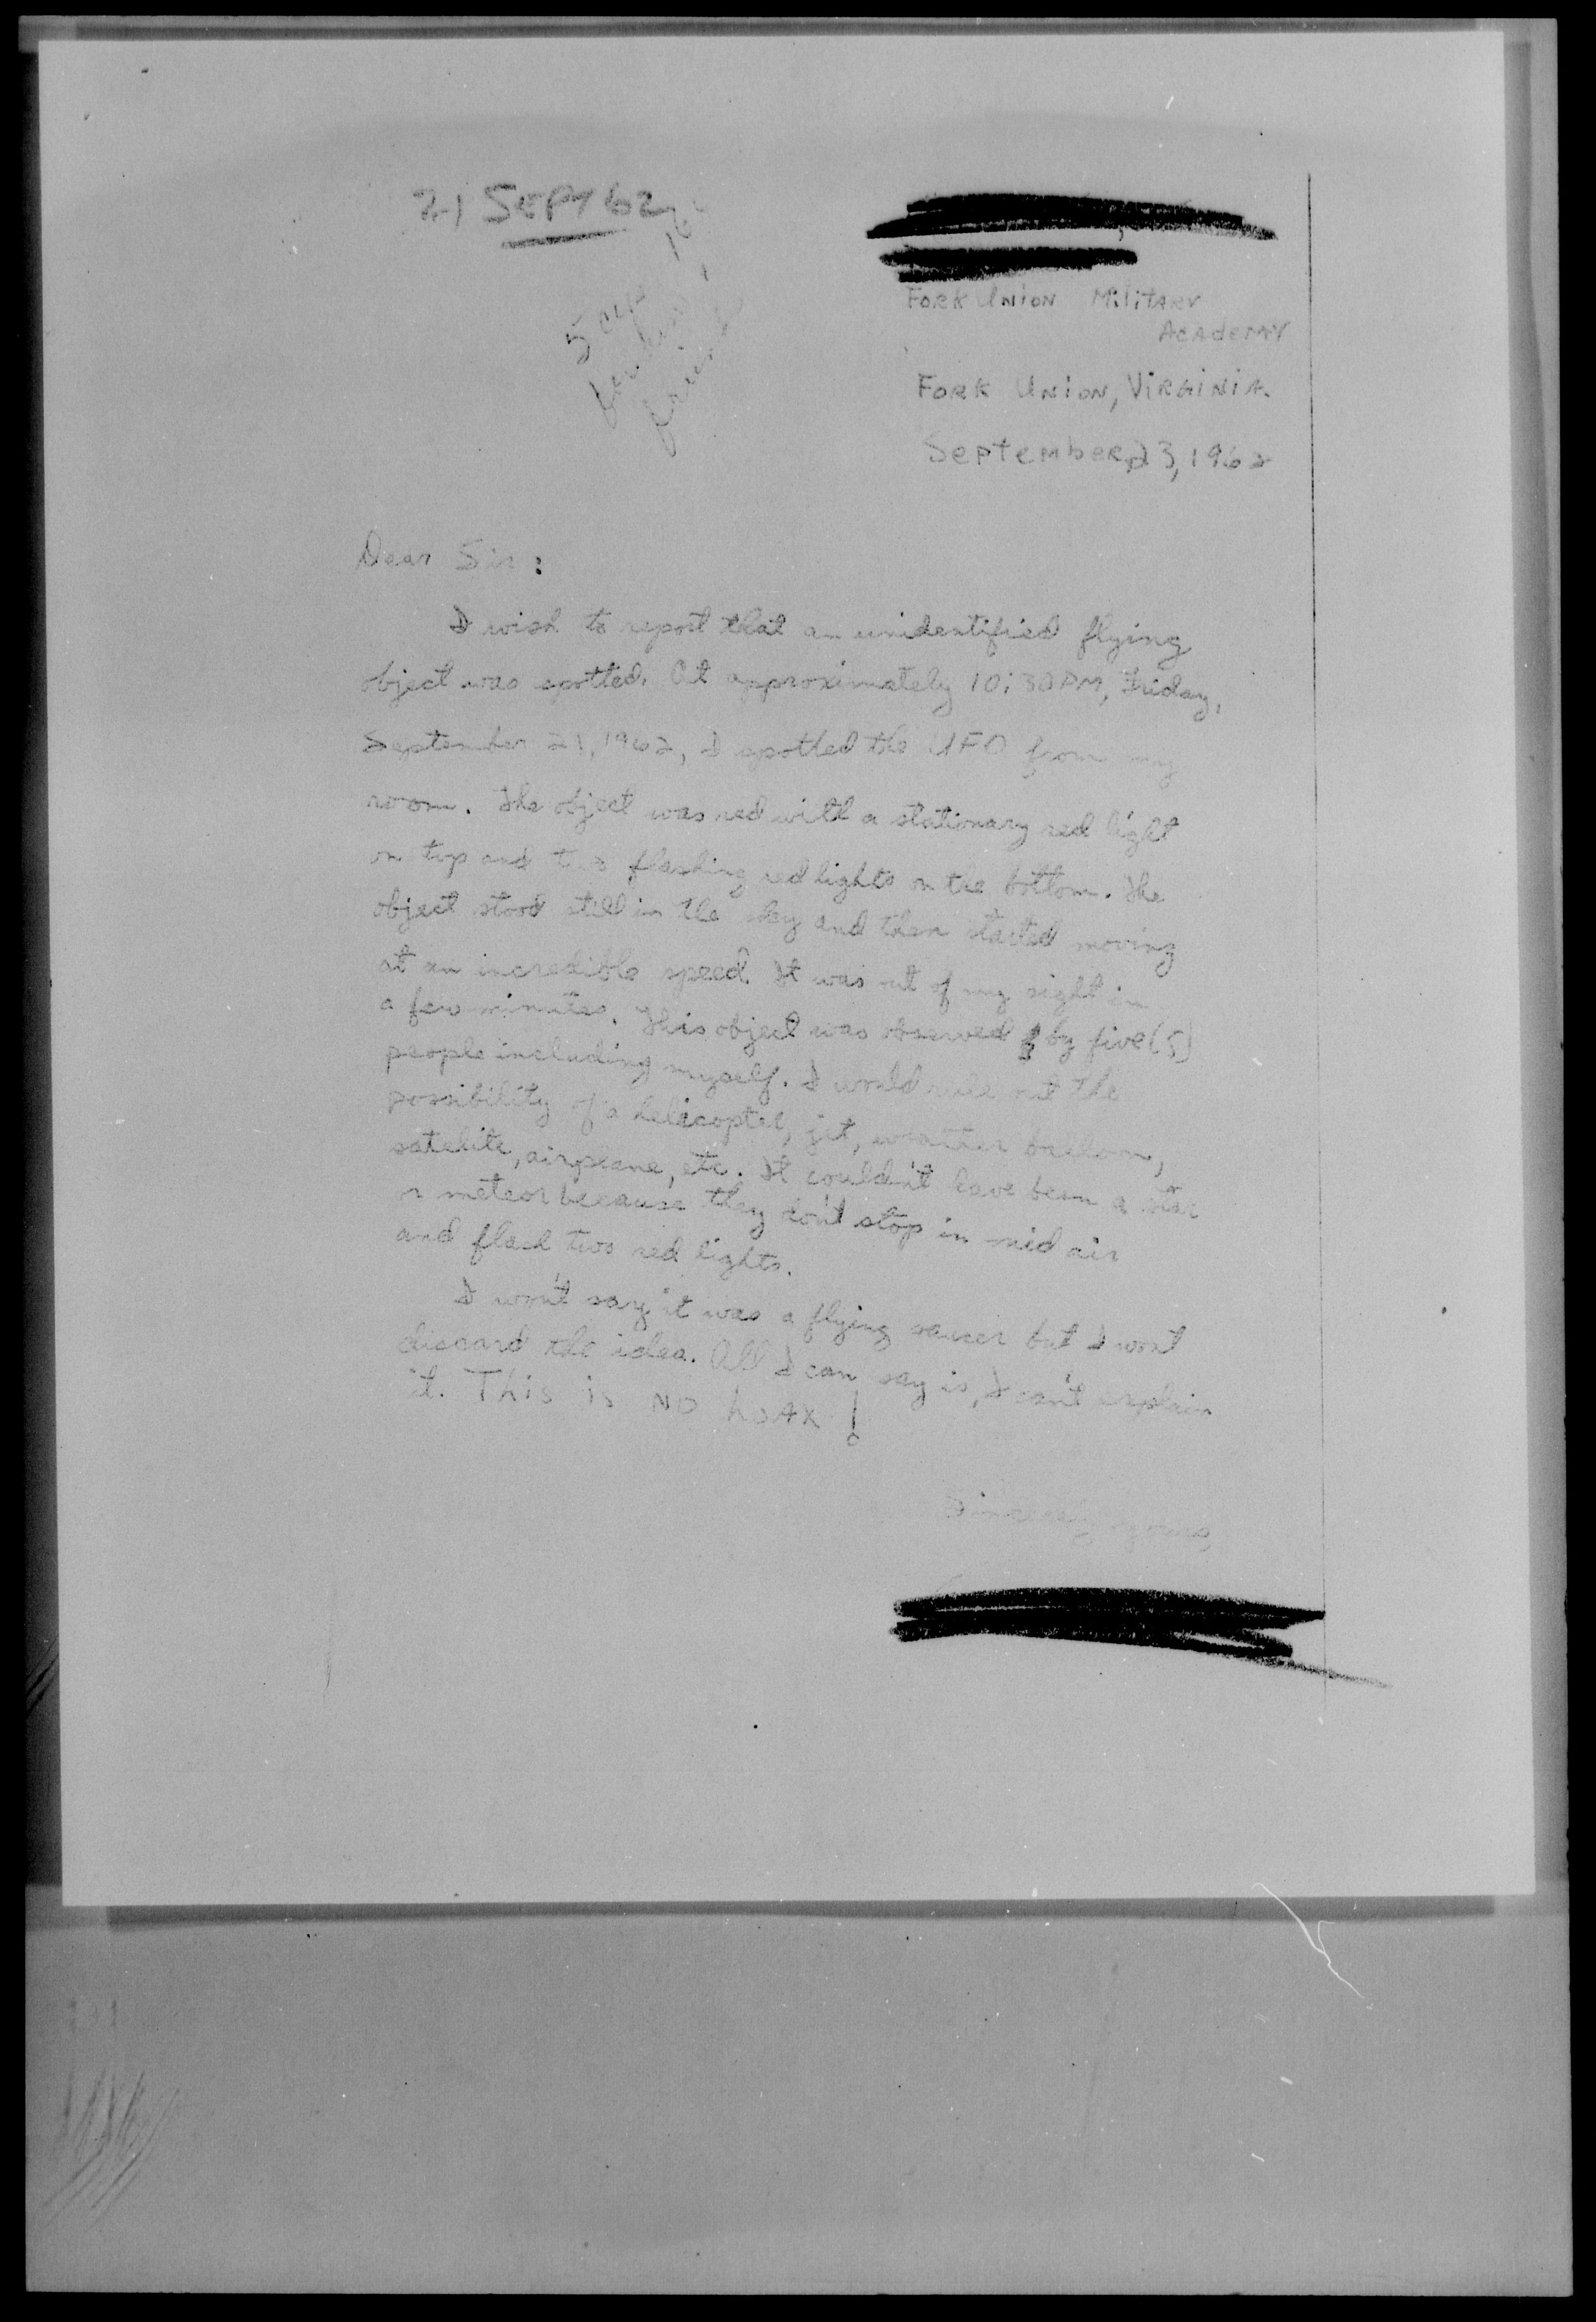 21 SEPT 62
Fork Union Military
Academy
Fork Union, Virginia.
September 23, 1962
Dear Sir:
I wish to report that an unidentified flying
object was spotted. At approximately 10:30 PM, Friday,
September 21, 1962, I spotted the UFO from my
room. The object was red with a stationary red light
on top and two flashing red lights on the bottom. The
object stood still in the sky and then started moving
at an incredible speed. It was out of my sight in
a few minutes. This object was observed by five (5)
people including myself. I would rule out the
possibility of a helicopter, jet, weather balloon,
satelite, airplane, etc. It couldn't have been a star
or meteor because they don't stop in mid air
and flash two red lights.
I won't say it was a flying saucer but I wont
discard the idea. All I can say is, I can't explain
it. This is NO hoax!
Sincerely yours,